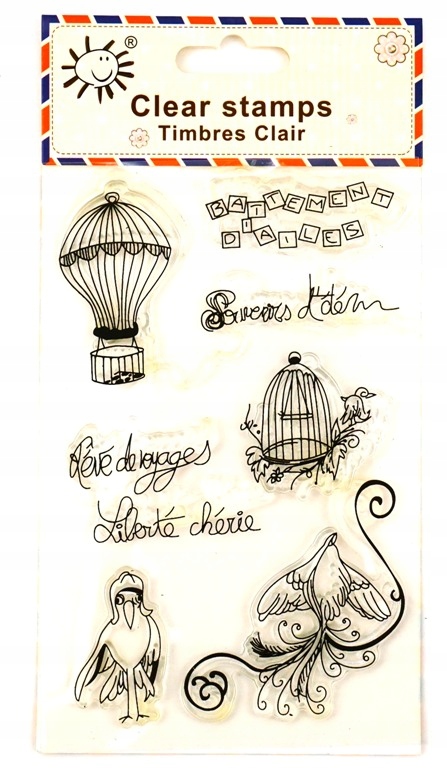 ®
Clear stamps
Timbres Clair
BATTEMENT
D'AILES
Souvenirs d'été
Rêve de voyages
Liberté chérie